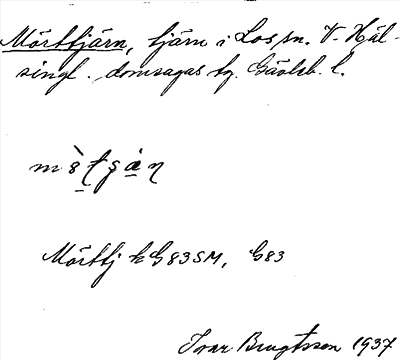 Mörttjärn, tjärn i Los sn. V. Häl-
singl. domsagas tg. Gävleb. l.
Mörttj k G83SM, G83
Ivar Bengtsson 1937